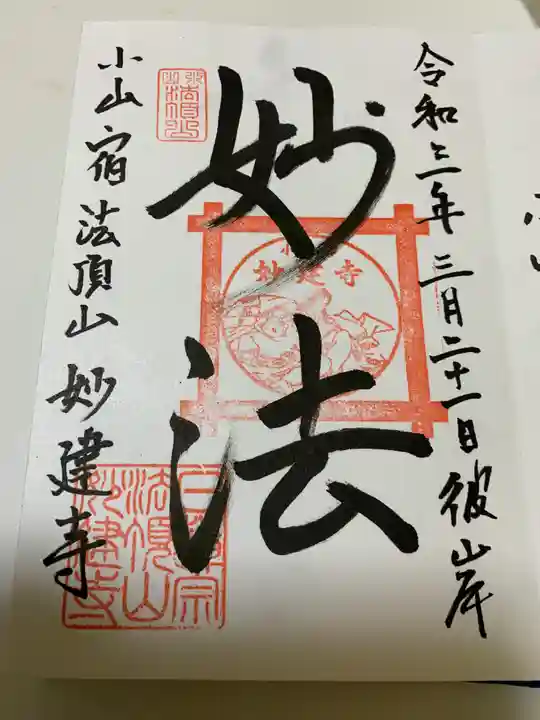 令和三年三月二十一日彼岸
妙法
妙建寺
小山宿法頂山妙建寺
日蓮宗
法頂山
妙建寺